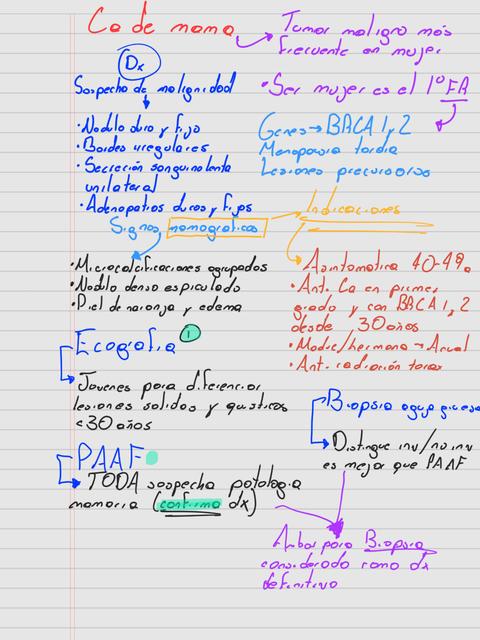 Ca de mama
Tumor maligno más
frecuente en mujer
• Ser mujer es el 1º FA
Dx
Sospecha de malignidad
• Nodulo duro y fijo
• Bordes irregulares
• Secreción sanguinolenta
unilateral
• Adenopatias duras y fijas
Genes → BACA 1, 2
Menopausia tardia
Lesiones precursoras
Signos mamograficos
Indicaciones
• Microcalcificaciones agrupadas
• Nodulo denso espiculado
• Piel de naranja y edema
Asintomatica 40-49a
• Ant. Ca en primer
grado y con BACA 1, 2
desde 30 años
• Madre/hermana → Anual
• Ant. radiación torax
Ecografia 1
Jovenes para diferenciar
lesiones solidas y quisticas
<30 años
PAAF
TODA sospecha patologia
mamaria (confirma dx)
Biopsia aguja gruesa
Distingue inv/no inv
es mejor que PAAF
Ambar para Biopsia
considerado como dx
definitivo